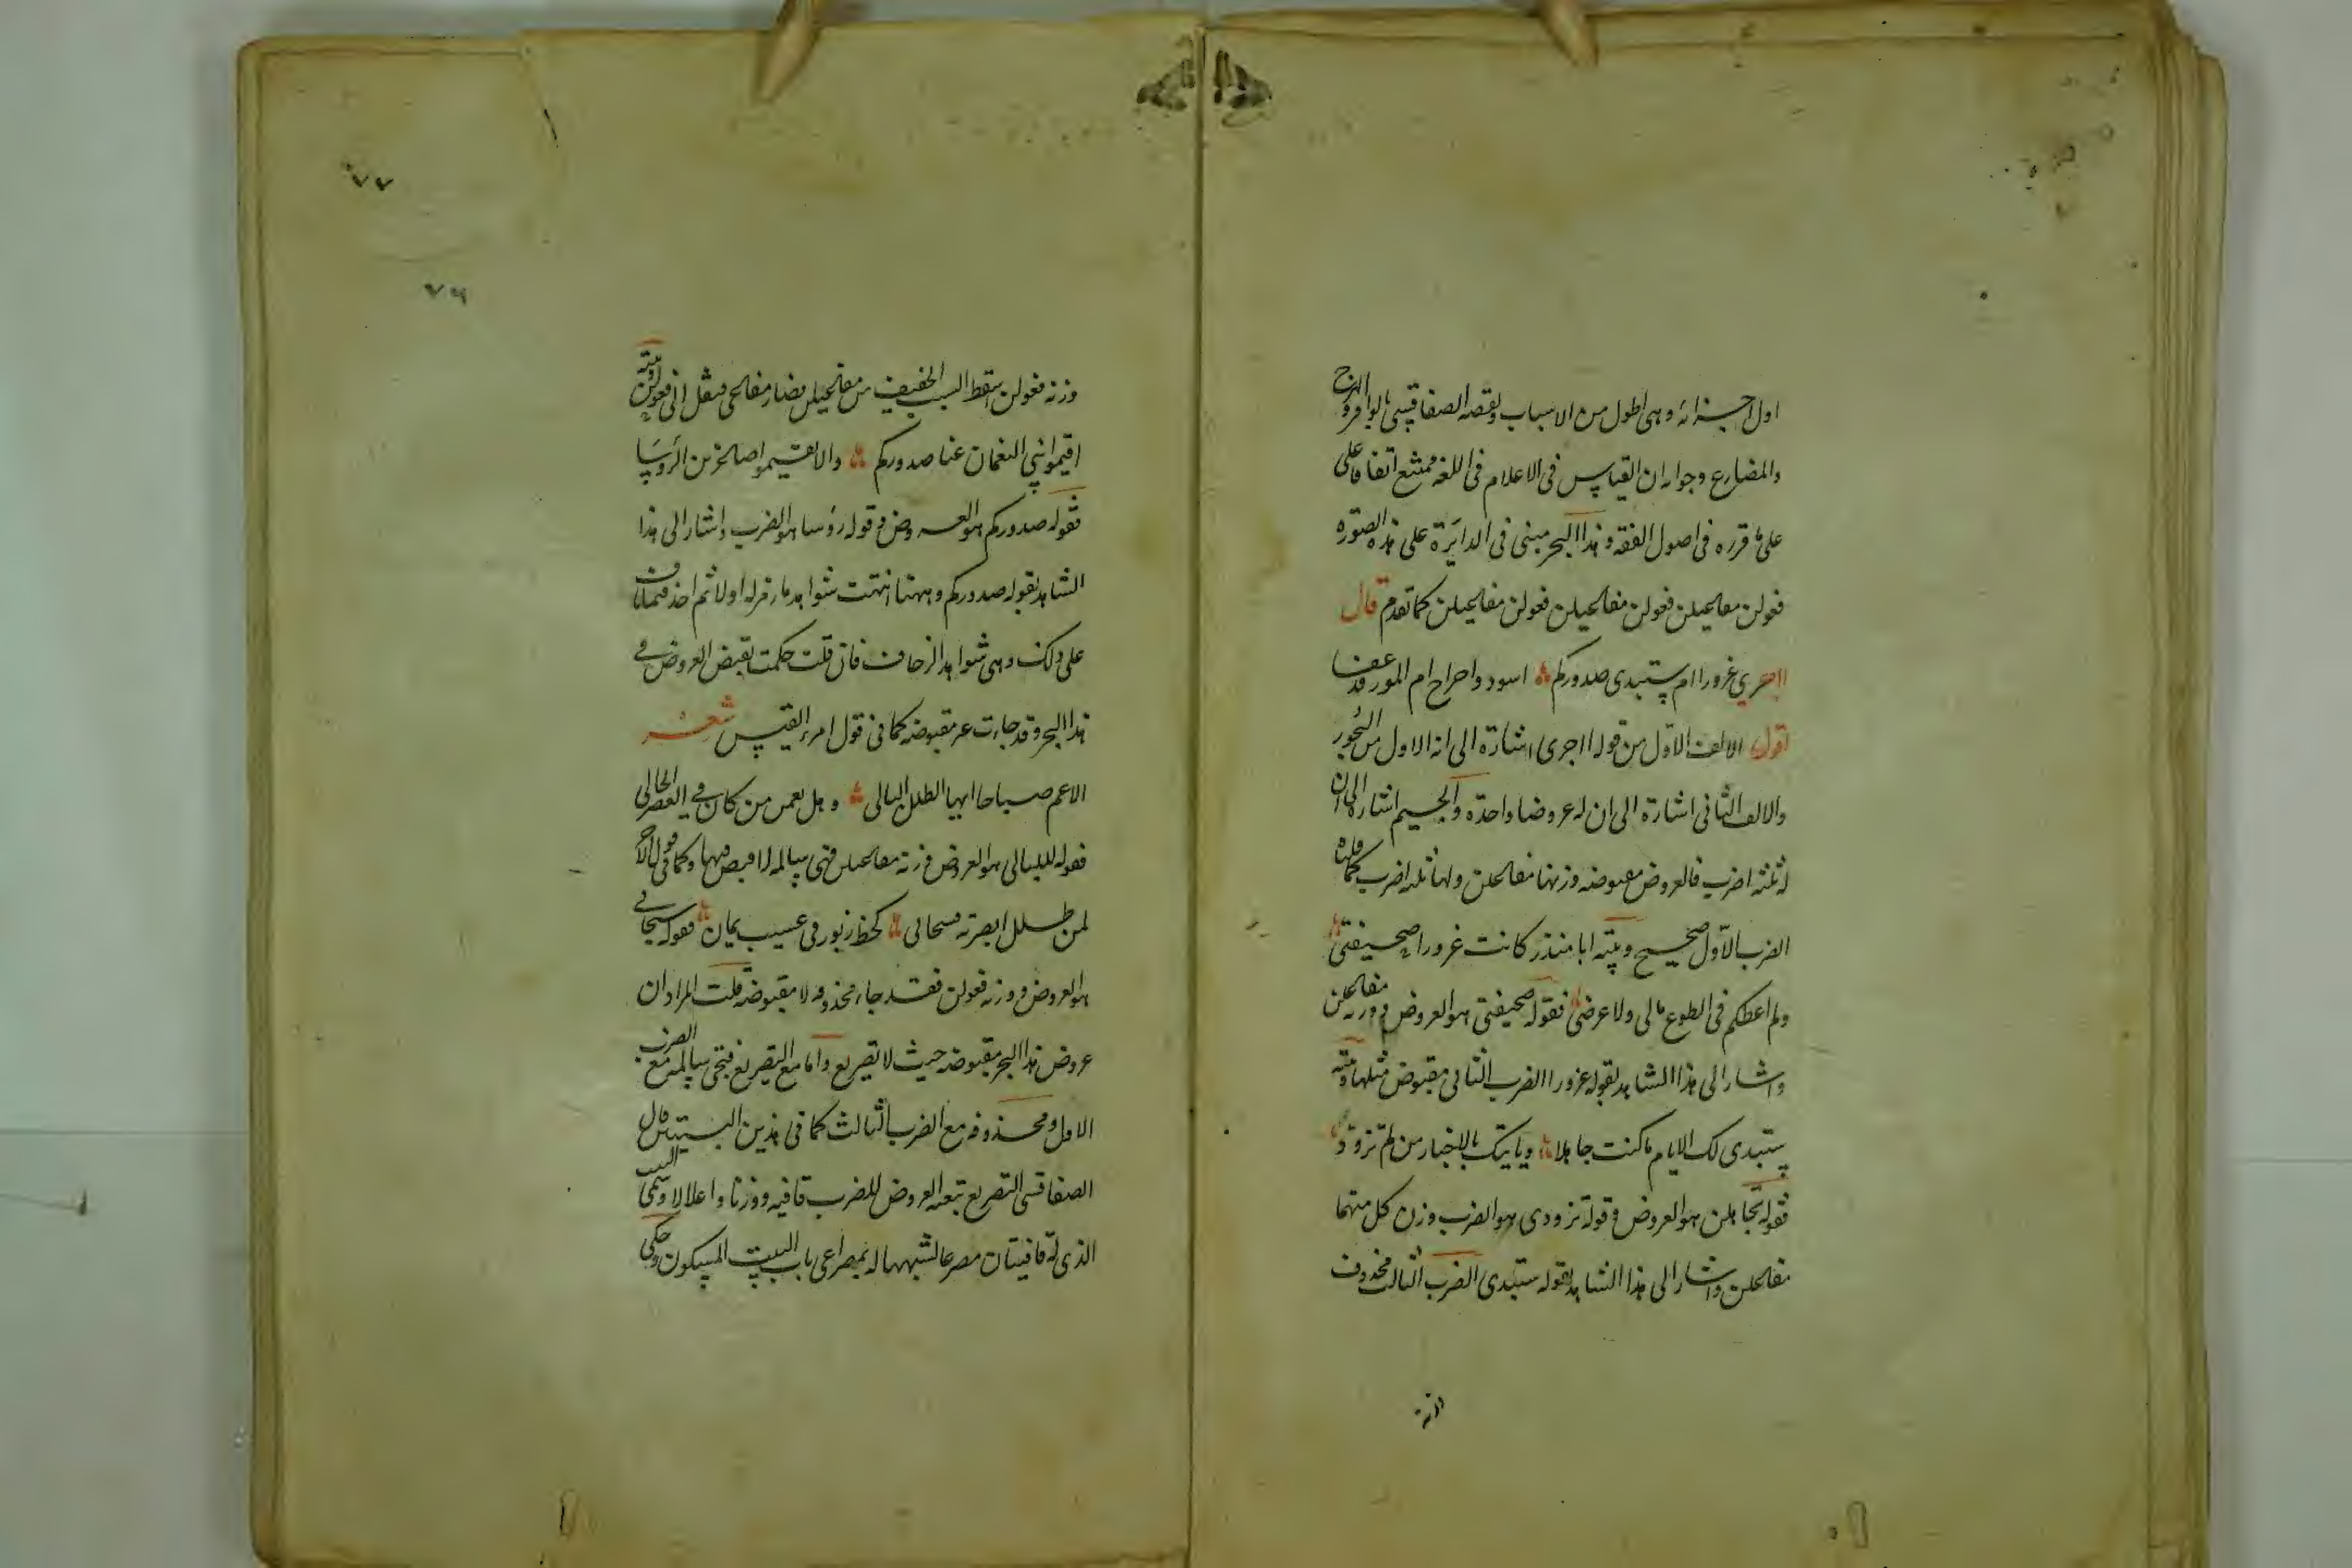 اول اجزائه وهى اطول من الاسباب ونقضه الصفاقسي بالوافر والهزج
والمضارع وجوابه ان القياس فى الاعلام فى اللغه ممتنع اتفاقا على
على ما قرره فى اصول الفقه وهذا البحر مبنى فى الدائرة على هذه الصورة
فعولن مفاعيلن فعولن مفاعيلن فعولن مفاعيلن كما تقدم قال
ااجرى غرورا ام ستبدى صدوركم اسود واحراح ام المور قد عفا
اقول الالف الاول من قوله ااجرى اشارة الى انه الاول من البحور
والالف الثانى اشارة الى ان له عروضا واحدة والجيم اشارة الى ان
له ثلثه اضرب فالعروض مقبوضه وزنها مفاعلن ولها ثلثه اضرب كما قلناه
الضرب الاول صحيح وبيته ابا منذر كانت غرورا صحيفتى
ولم اعطكم فى الطوع مالى ولا عرضى فقوله صحيفتى هو العروض ووزنه مفاعلن
واشار الى هذا الشاهد بقوله غرورا الضرب الثانى مقبوض مثلها وبيته
ستبدى لك الايام ما كنت جاهلا وياتيك بالاخبار من لم تزود
فقوله تجاهلن هو العروض وقوله تزودى هو الضرب وزن كل منهما
مفاعلن واشار الى هذا الشاهد بقوله ستبدى الضرب الثالث محذوف
وزنه
٧٧
٧٦
وزنه فعولن سقط السبب الخفيف من مفاعيلن فصار مفاعى فنقل الى فعولن وبيته
اقيموا بنى النعمان عنا صدوركم والا تقيموا صاغرين الرؤسا
فقوله صدوركم هو العروض وقوله رؤسا هو الضرب واشار الى هذا
الشاهد بقوله صدوركم وههنا انتهت شواهد ما رمزله اولا ثم اخذ فيما زاد
على ذلك وهى شواهد الزحاف فان قلت حكمت بقبض العروض فى
هذا البحر وقد جاءت غير مقبوضه كما فى قول امرء القيس شعر
الا عم صباحا ايها الطلل البالى وهل يعمن من كان فى العصر الخالى
فقوله للبالى هو العروض وزنه مفاعيلن فهى سالمه لا قبض فيها وكما فى قول الآخر
لمن طلل ابصرته فشجانى كخط زبور فى عسيب يمان فقوله شجانى
هو العروض ووزنه فعولن فقد جاء محذوفه لا مقبوضه قلت المراد ان
عروض هذا البحر مقبوضه حيث لا تصريع واما مع التصريع فتجى سالمه مع الضرب
الاول ومحذوفه مع الضرب الثالث كما فى هذين البيتين قال
الصفاقسى التصريع تبعه العروض للضرب قافيه ووزنا واعلالا وسمى البيت
الذى له قافيتان مصرعا لشبهها له بمصراعى باب البيت المسكون وحكى